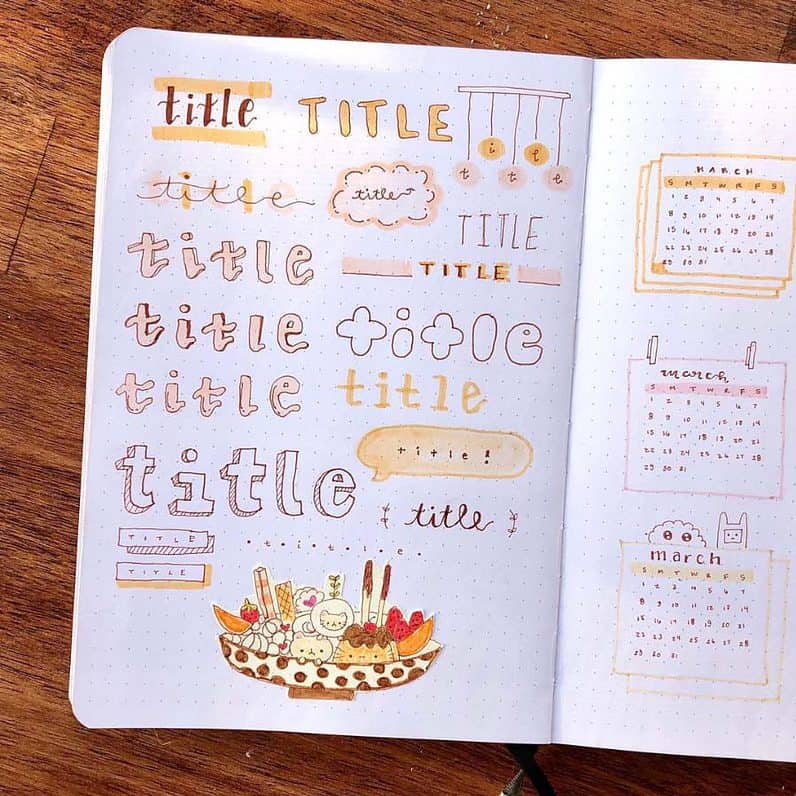 title
TITLE
title
title
title
TITLE
title
TITLE
title
title
title
title
title !
title
title
TITLE
• t • i • t • l • e •
TITLE
MARCH
S M T W R F S
1 2 3 4 5 6 7
8 9 10 11 12 13 14
15 16 17 18 19 20 21
22 23 24 25 26 27 28
29 30 31
march
S M T W R F S
1 2 3 4 5 6 7
8 9 10 11 12 13 14
15 16 17 18 19 20 21
22 23 24 25 26 27 28
29 30 31
march
S M T W R F S
1 2 3 4 5 6 7
8 9 10 11 12 13 14
15 16 17 18 19 20 21
22 23 24 25 26 27 28
29 30 31